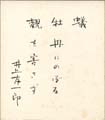 蟻
牡丹にのぼる
観を害さず
井上
一郎